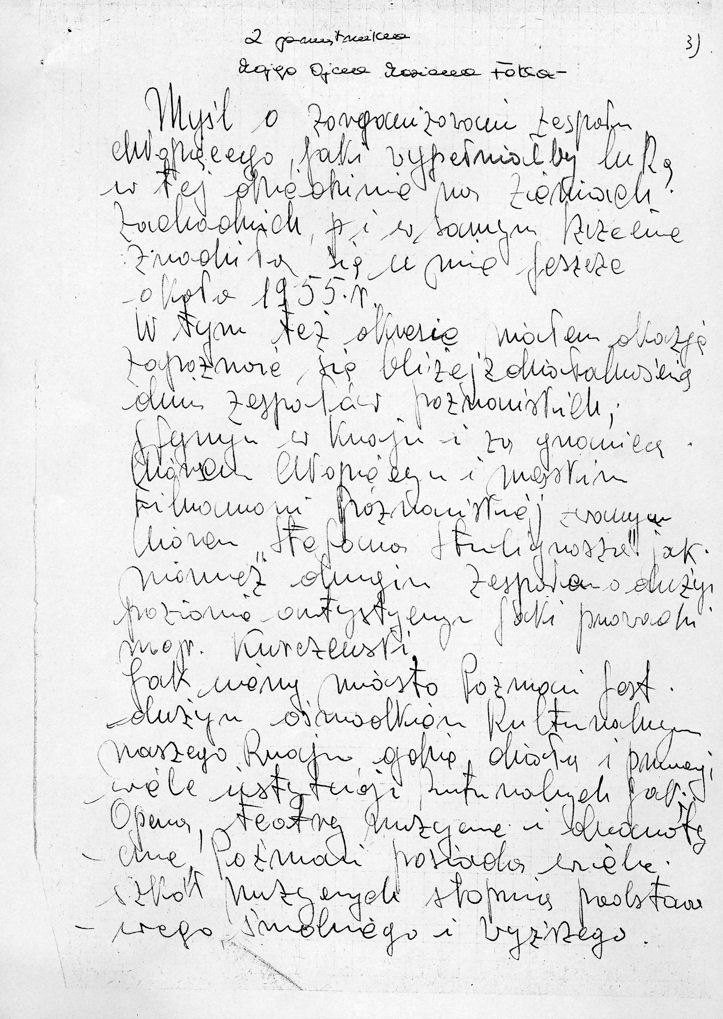 Z pamiętnika
3)
Mojego Ojca Mariana
Myśl o zorganizowaniu zespołu
chłopięcego, jaki wypełniałby lukę
w tej dziedzinie na Ziemiach
Zachodnich, i w samym
zrodziła się u mnie jeszcze
około 1955.r.
W tym też okresie miałem okazję
zapoznać się bliżej z działalnością
dwu zespołów poznańskich,
słynnym w Kraju i za granicą
Chórem Chłopięcym i męskim
Filharmonii Poznańskiej zwanym
Chórem "Stefana Stuligrosza" jak
również drugim zespołem o dużym
poziomie artystycznym jaki prowadzi
mgr. Kurczewski.
Jak wiemy miasto Poznań jest
dużym ośrodkiem Kulturalnym
naszego Kraju gdzie działa i pracuje
wiele instytucji kulturalnych jak:
Opera, teatry muzyczne i dramaty
czne, Poznań posiada wiele
szkół muzycznych stopnia podstawo
wego średniego i wyższego.